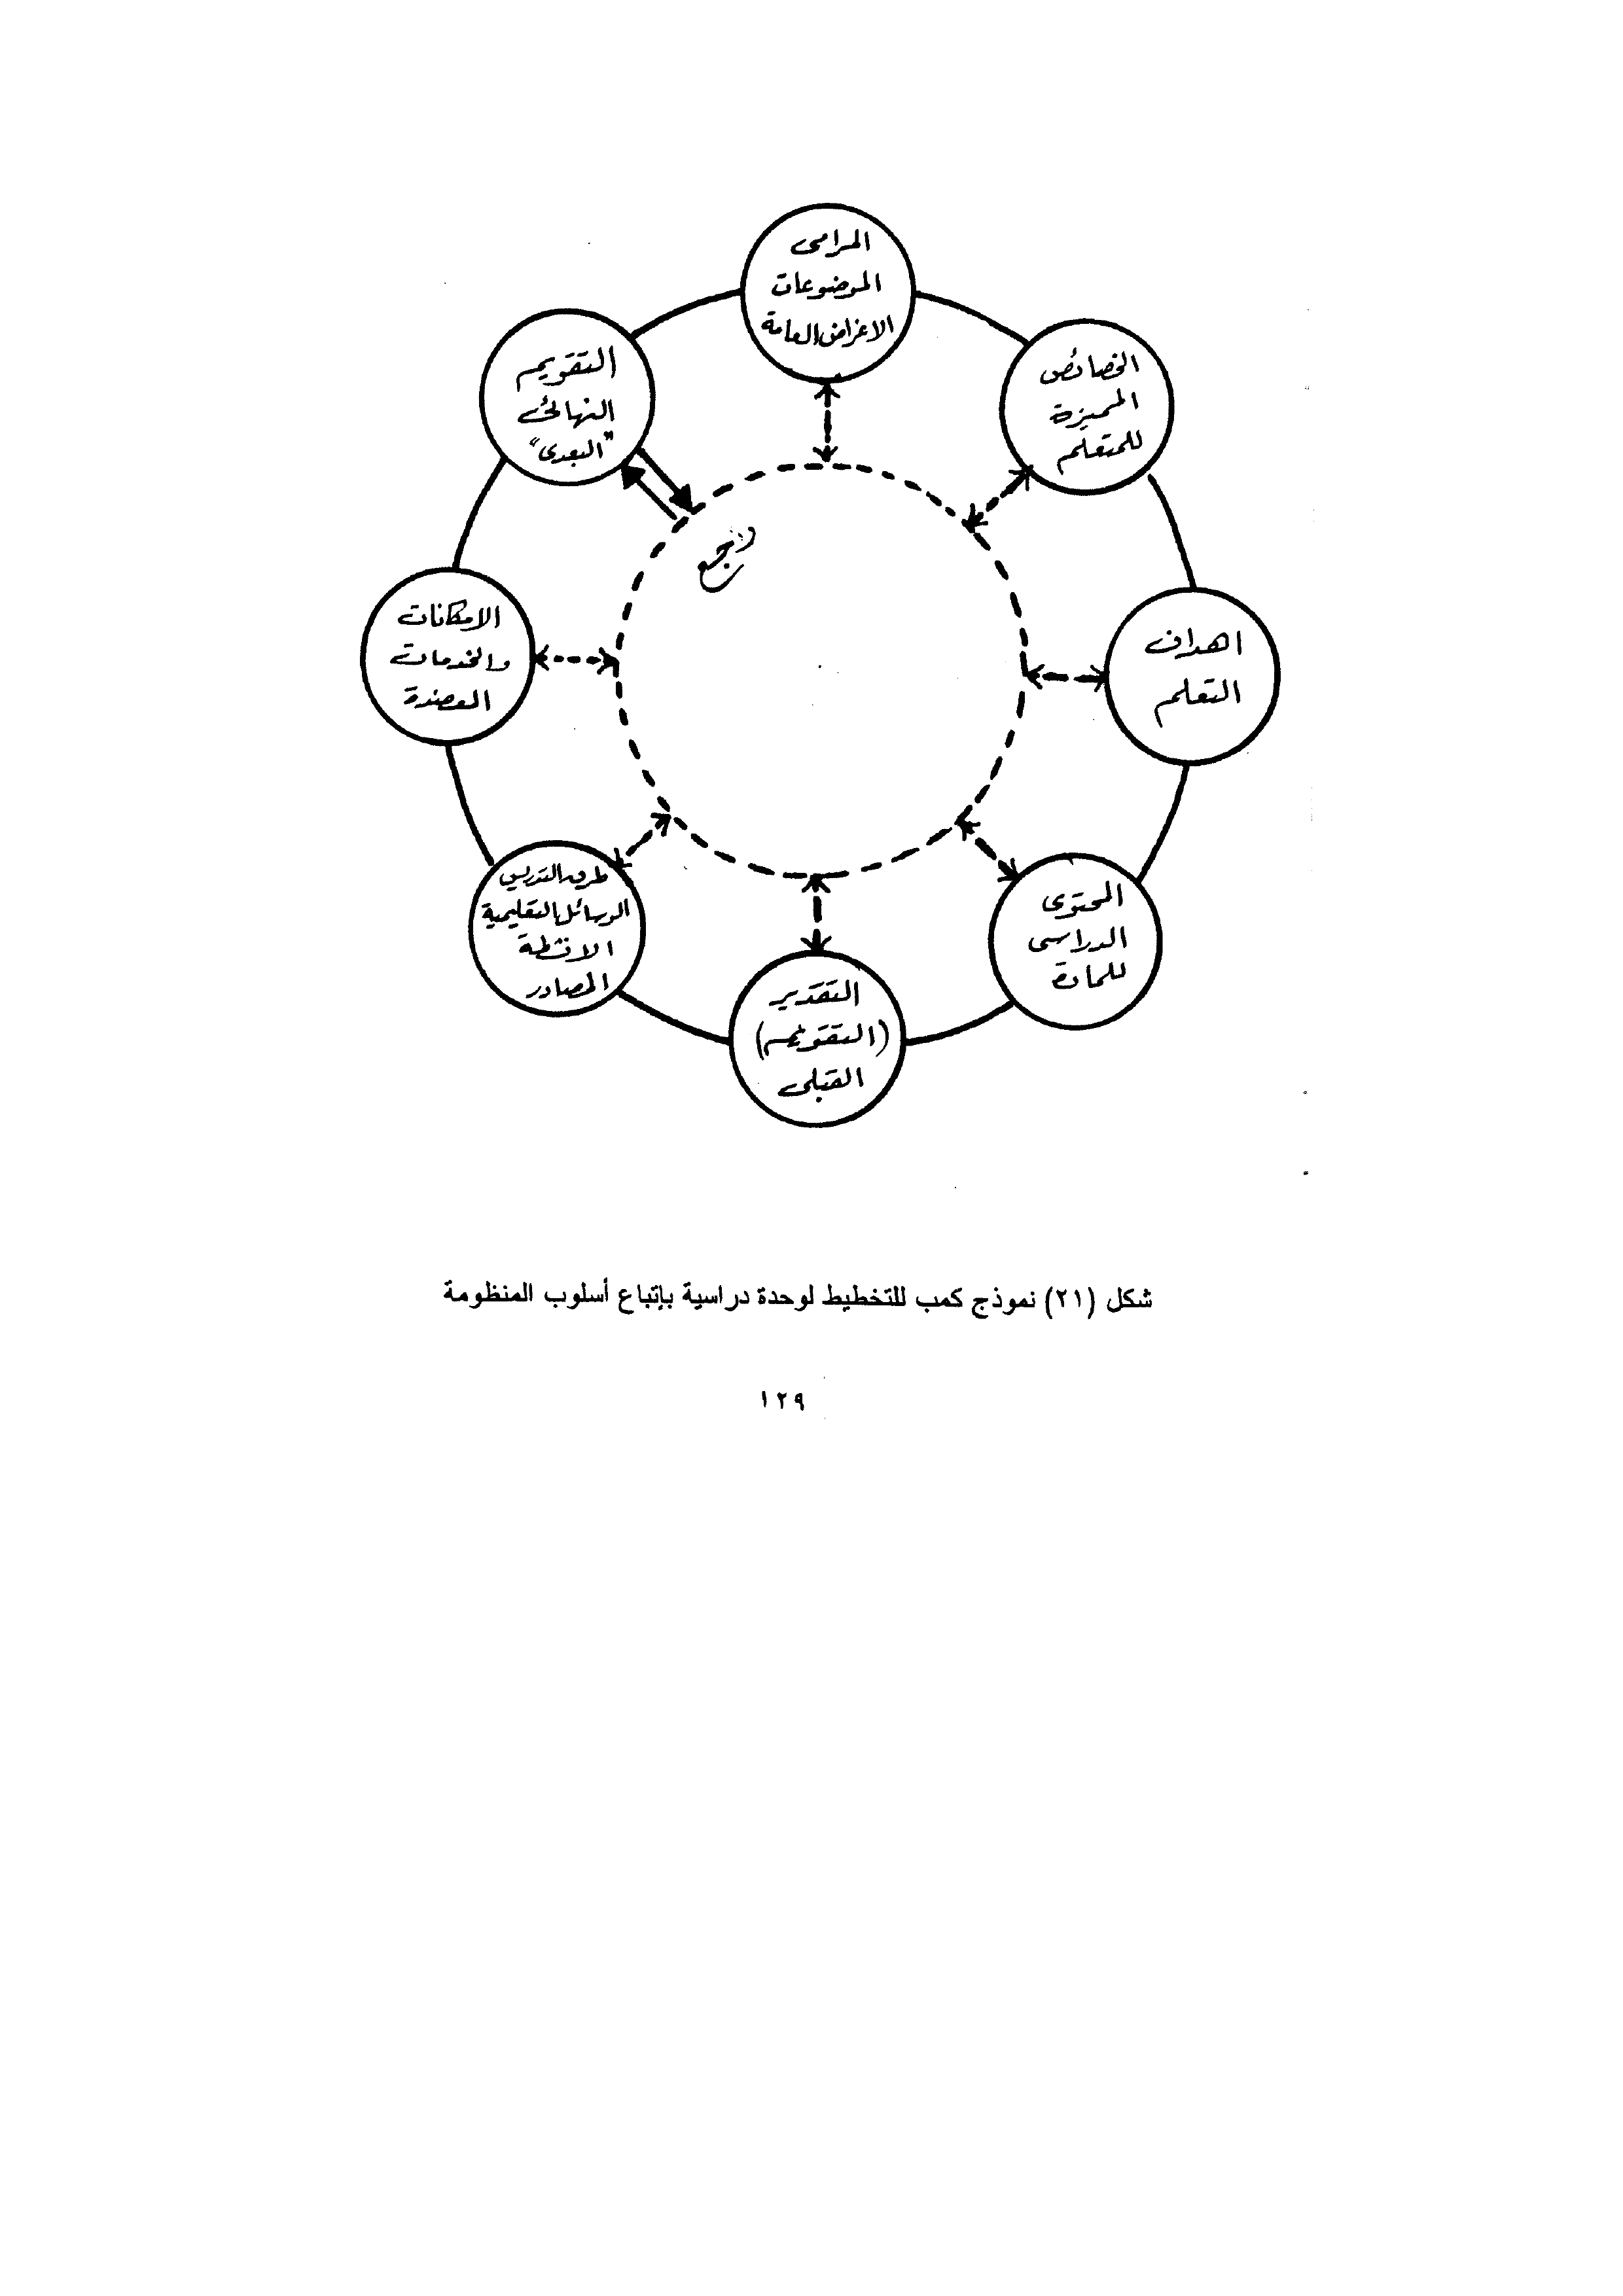 المرامى
الموضوعات
الاغراض العامة
الخصائص
المميزة
للمتعلم
اهداف
التعلم
المحتوى
الدراسى
للمادة
التقدير
(التقويم)
القبلى
طرق التدريس
الوسائل التعليمية
الانشطة
المصادر
الامكانات
والخدمات
المعضدة
التقويم
النهائى
"البعدى"
راجع
شكل (٢١) نموذج كمب للتخطيط لوحدة دراسية بإتباع أسلوب المنظومة
١٢٩